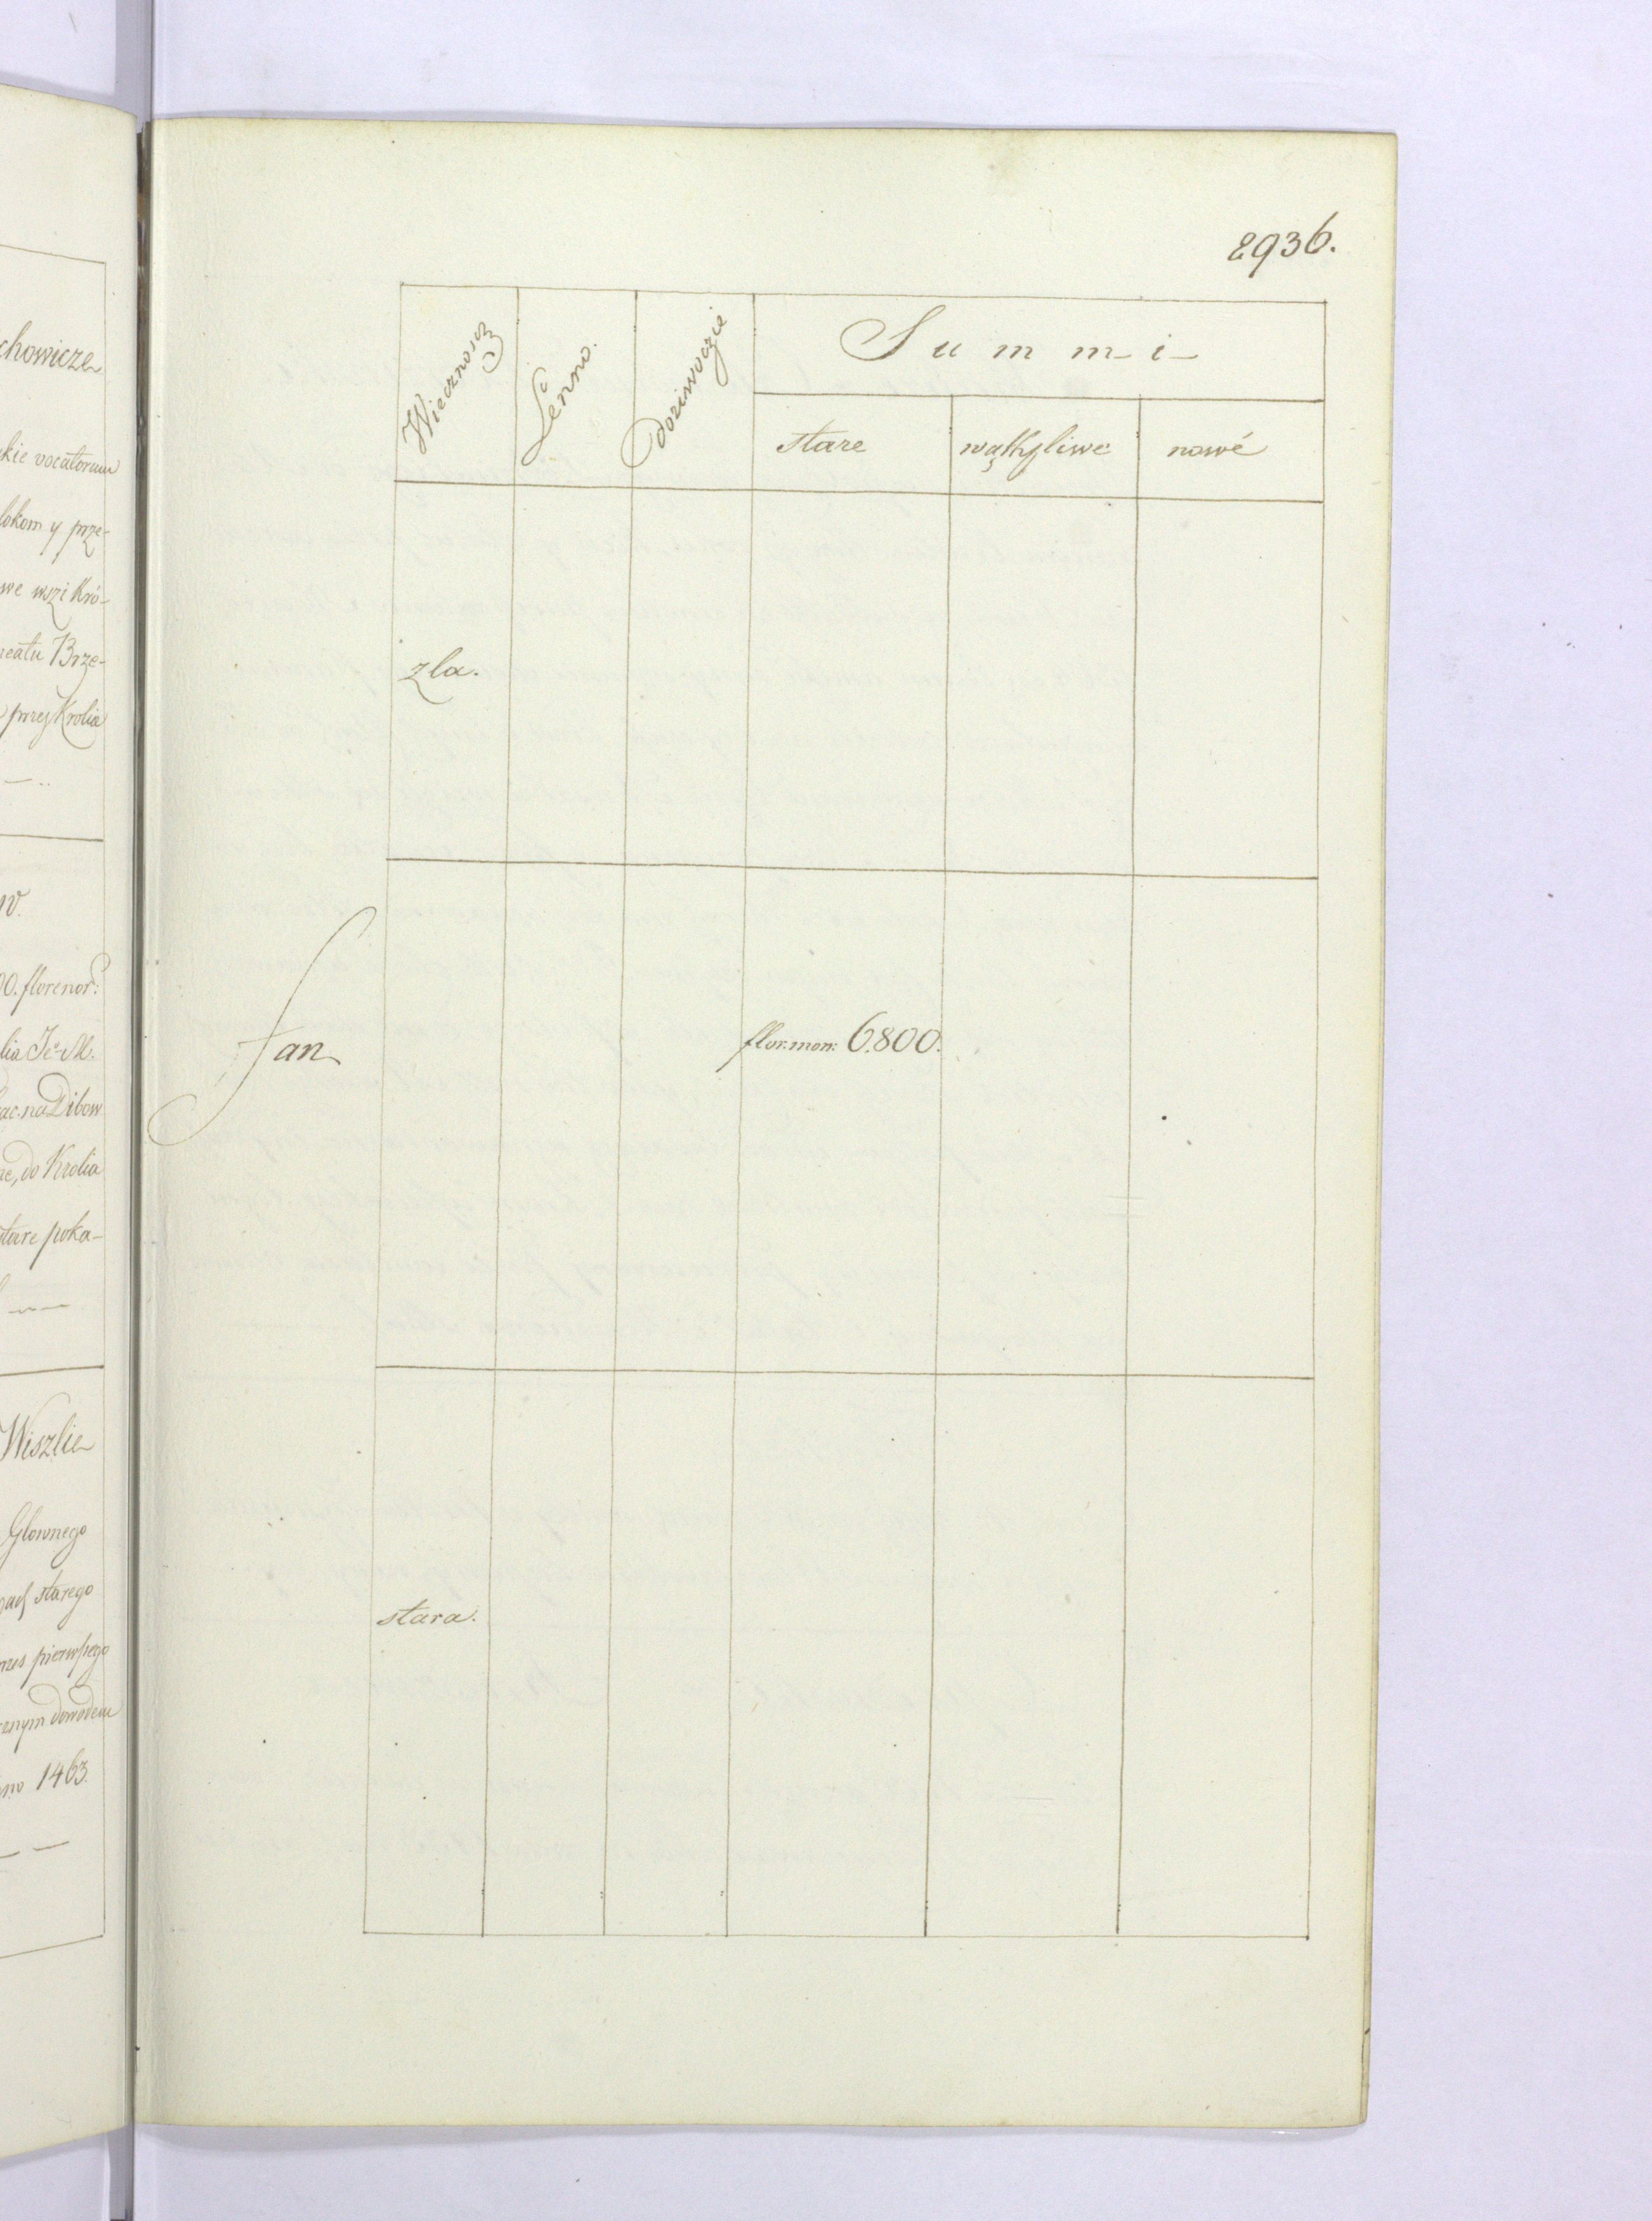 chowicze
kie vocatorum
lokom y prze-
we wszi Kró-
eatu Brze-
przez Krolia
w.
00. florenor:
lia Je M.
ac. na Dibow
ne, do Krolia
stare poka-
Wiszlie
Glownego
starego
pierwszego
znym dowodem
no 1463.
2936.
Wiecznoscz Lenno. Dożiwoczie Summ-i-
stare wąthpliwe nowé
zla.
Jan flor: mon: 6.800.
stara.